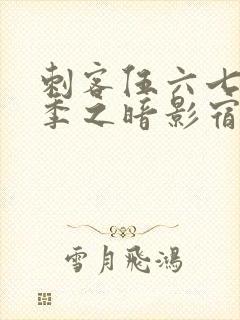 刺客伍六七
季之暗影宿
雪月飛鴻